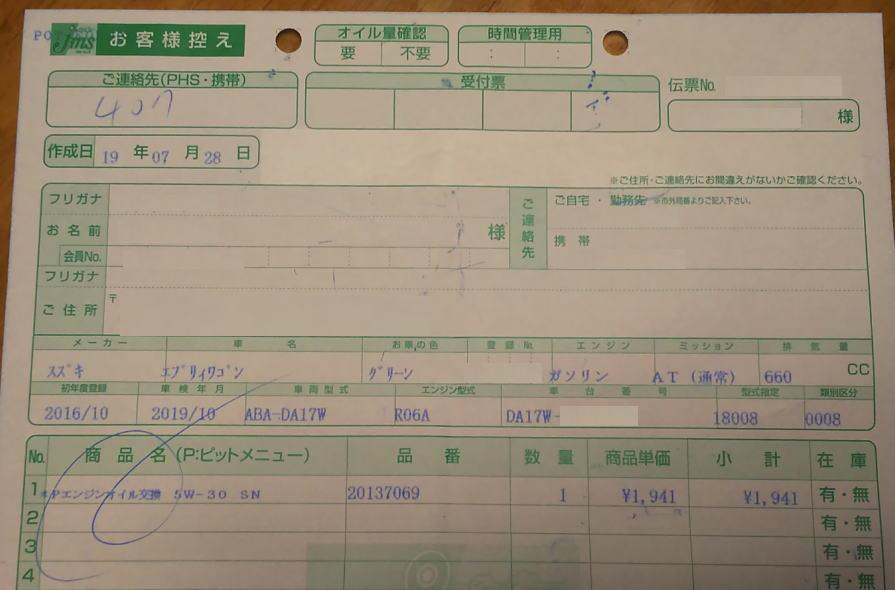 jms お客様控え
オイル量確認
要 不要
時間管理用
: :
ご連絡先(PHS・携帯)
407
受付票
伝票No.
様
作成日 19 年 07 月 28 日
※ご住所・ご連絡先にお間違えがないかご確認ください。
フリガナ
お名前 様
会員No.
フリガナ
ご住所 〒
ご連絡先
ご自宅・勤務先 ※市外局番よりご記入下さい。
携帯
メーカー 車名 お車の色 登録No. エンジン ミッション 排気量
スズキ エブリィワゴン グリーン ガソリン AT(通常) 660 CC
初年度登録 車検年月 車両型式 エンジン型式 車台番号 型式指定 類別区分
2016/10 2019/10 ABA-DA17W R06A DA17W- 18008 0008
No. 商品名(P:ピットメニュー) 品番 数量 商品単価 小計 在庫
1 *Pエンジンオイル交換 5W-30 SN 20137069 1 ¥1,941 ¥1,941 有・無
2 有・無
3 有・無
4 有・無